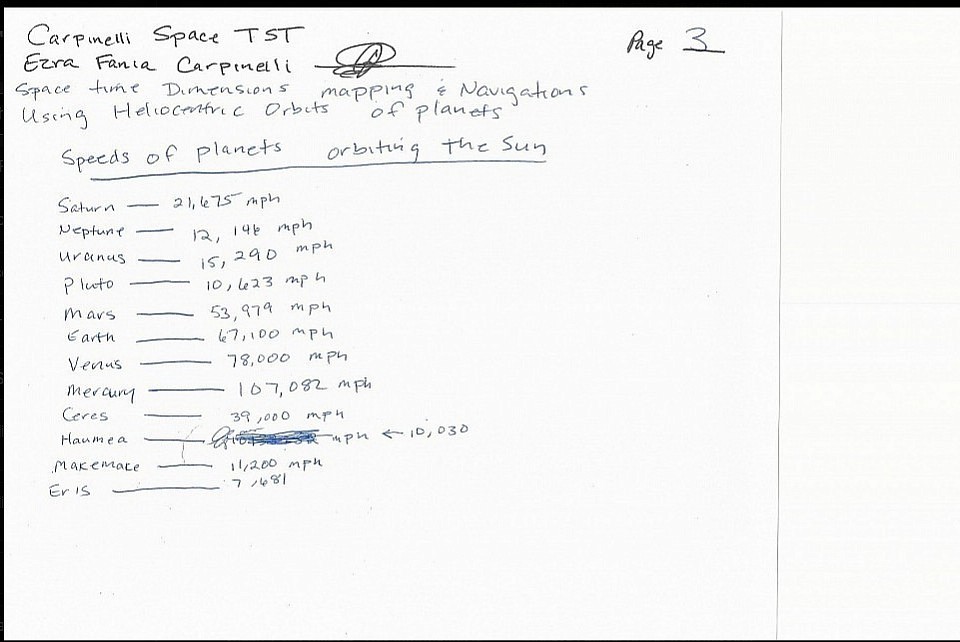 Carpinelli Space TST
Page 3
Ezra Fania Carpinelli
Space time Dimensions mapping & Navigations
Using Heliocentric Orbits of planets
Speeds of planets orbiting the Sun
Saturn — 21,675 mph
Neptune — 12,146 mph
Uranus — 15,290 mph
Pluto — 10,623 mph
Mars — 53,979 mph
Earth — 67,100 mph
Venus — 78,000 mph
Mercury — 107,082 mph
Ceres — 39,000 mph
Haumea — mph ← 10,030
Makemace — 11,200 mph
Eris — 7,681